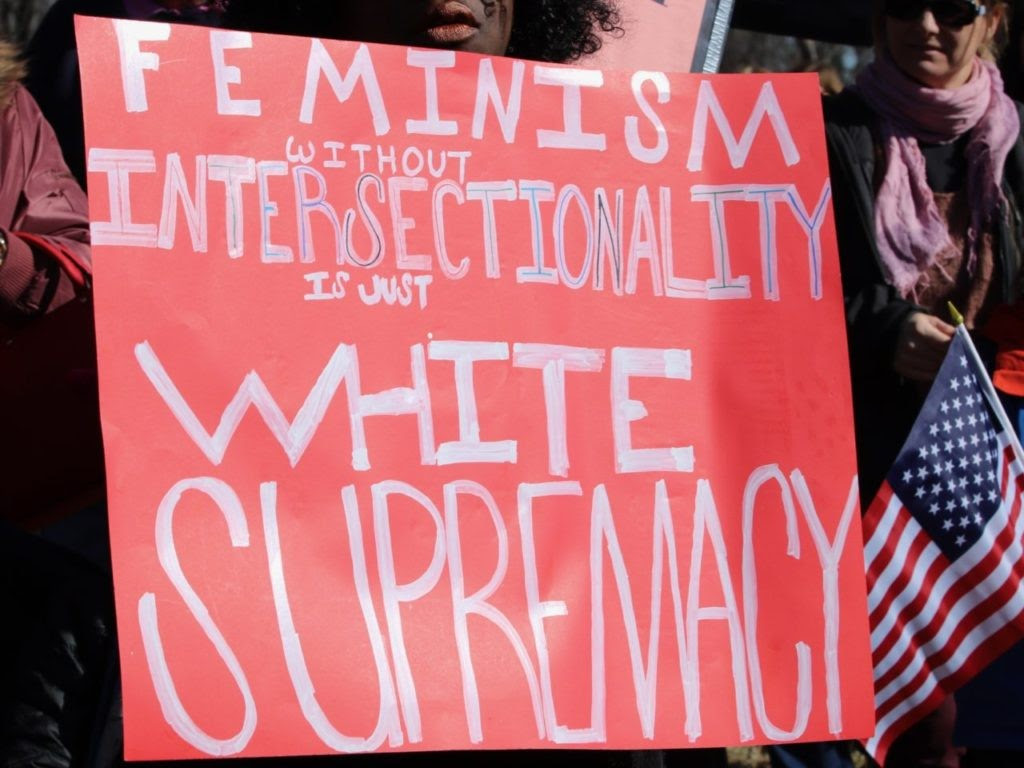 FEMINISM
WITHOUT
INTERSECTIONALITY
IS JUST
WHITE
SUPREMACY